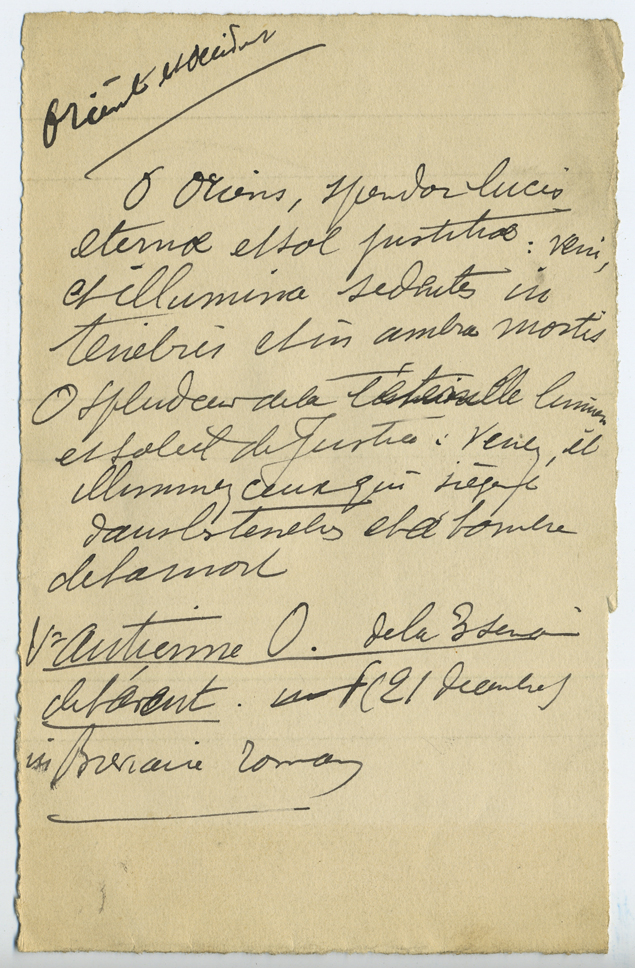 Orient et Occident
O Oriens, splendor lucis
eternæ et sol justitiæ : veni,
et illumina sedentes in
tenebris et in umbra mortis
O splendeur de la lumière
et soleil de Justice : Venez, et
illuminez ceux qui siègent
dans les ténèbres et à l'ombre
de la mort
Ve antienne O. de la 3 semai
de l'avent. (21 decembre)
in Breviaire romain